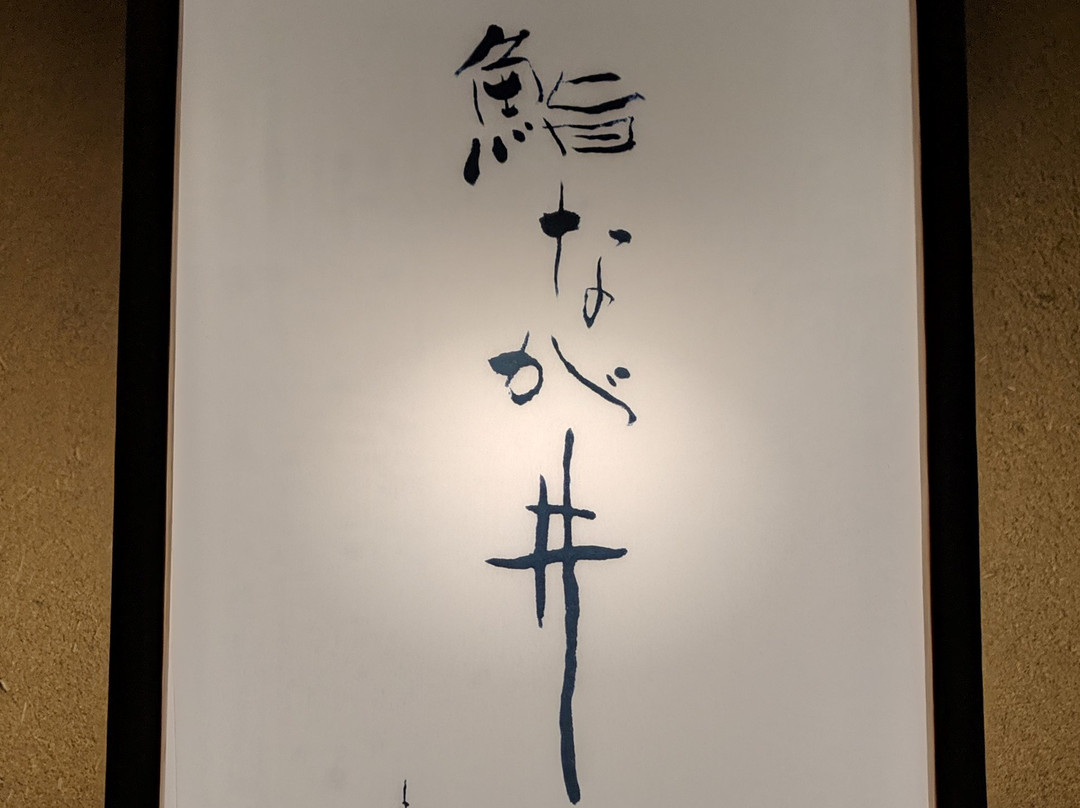 鮨なが井